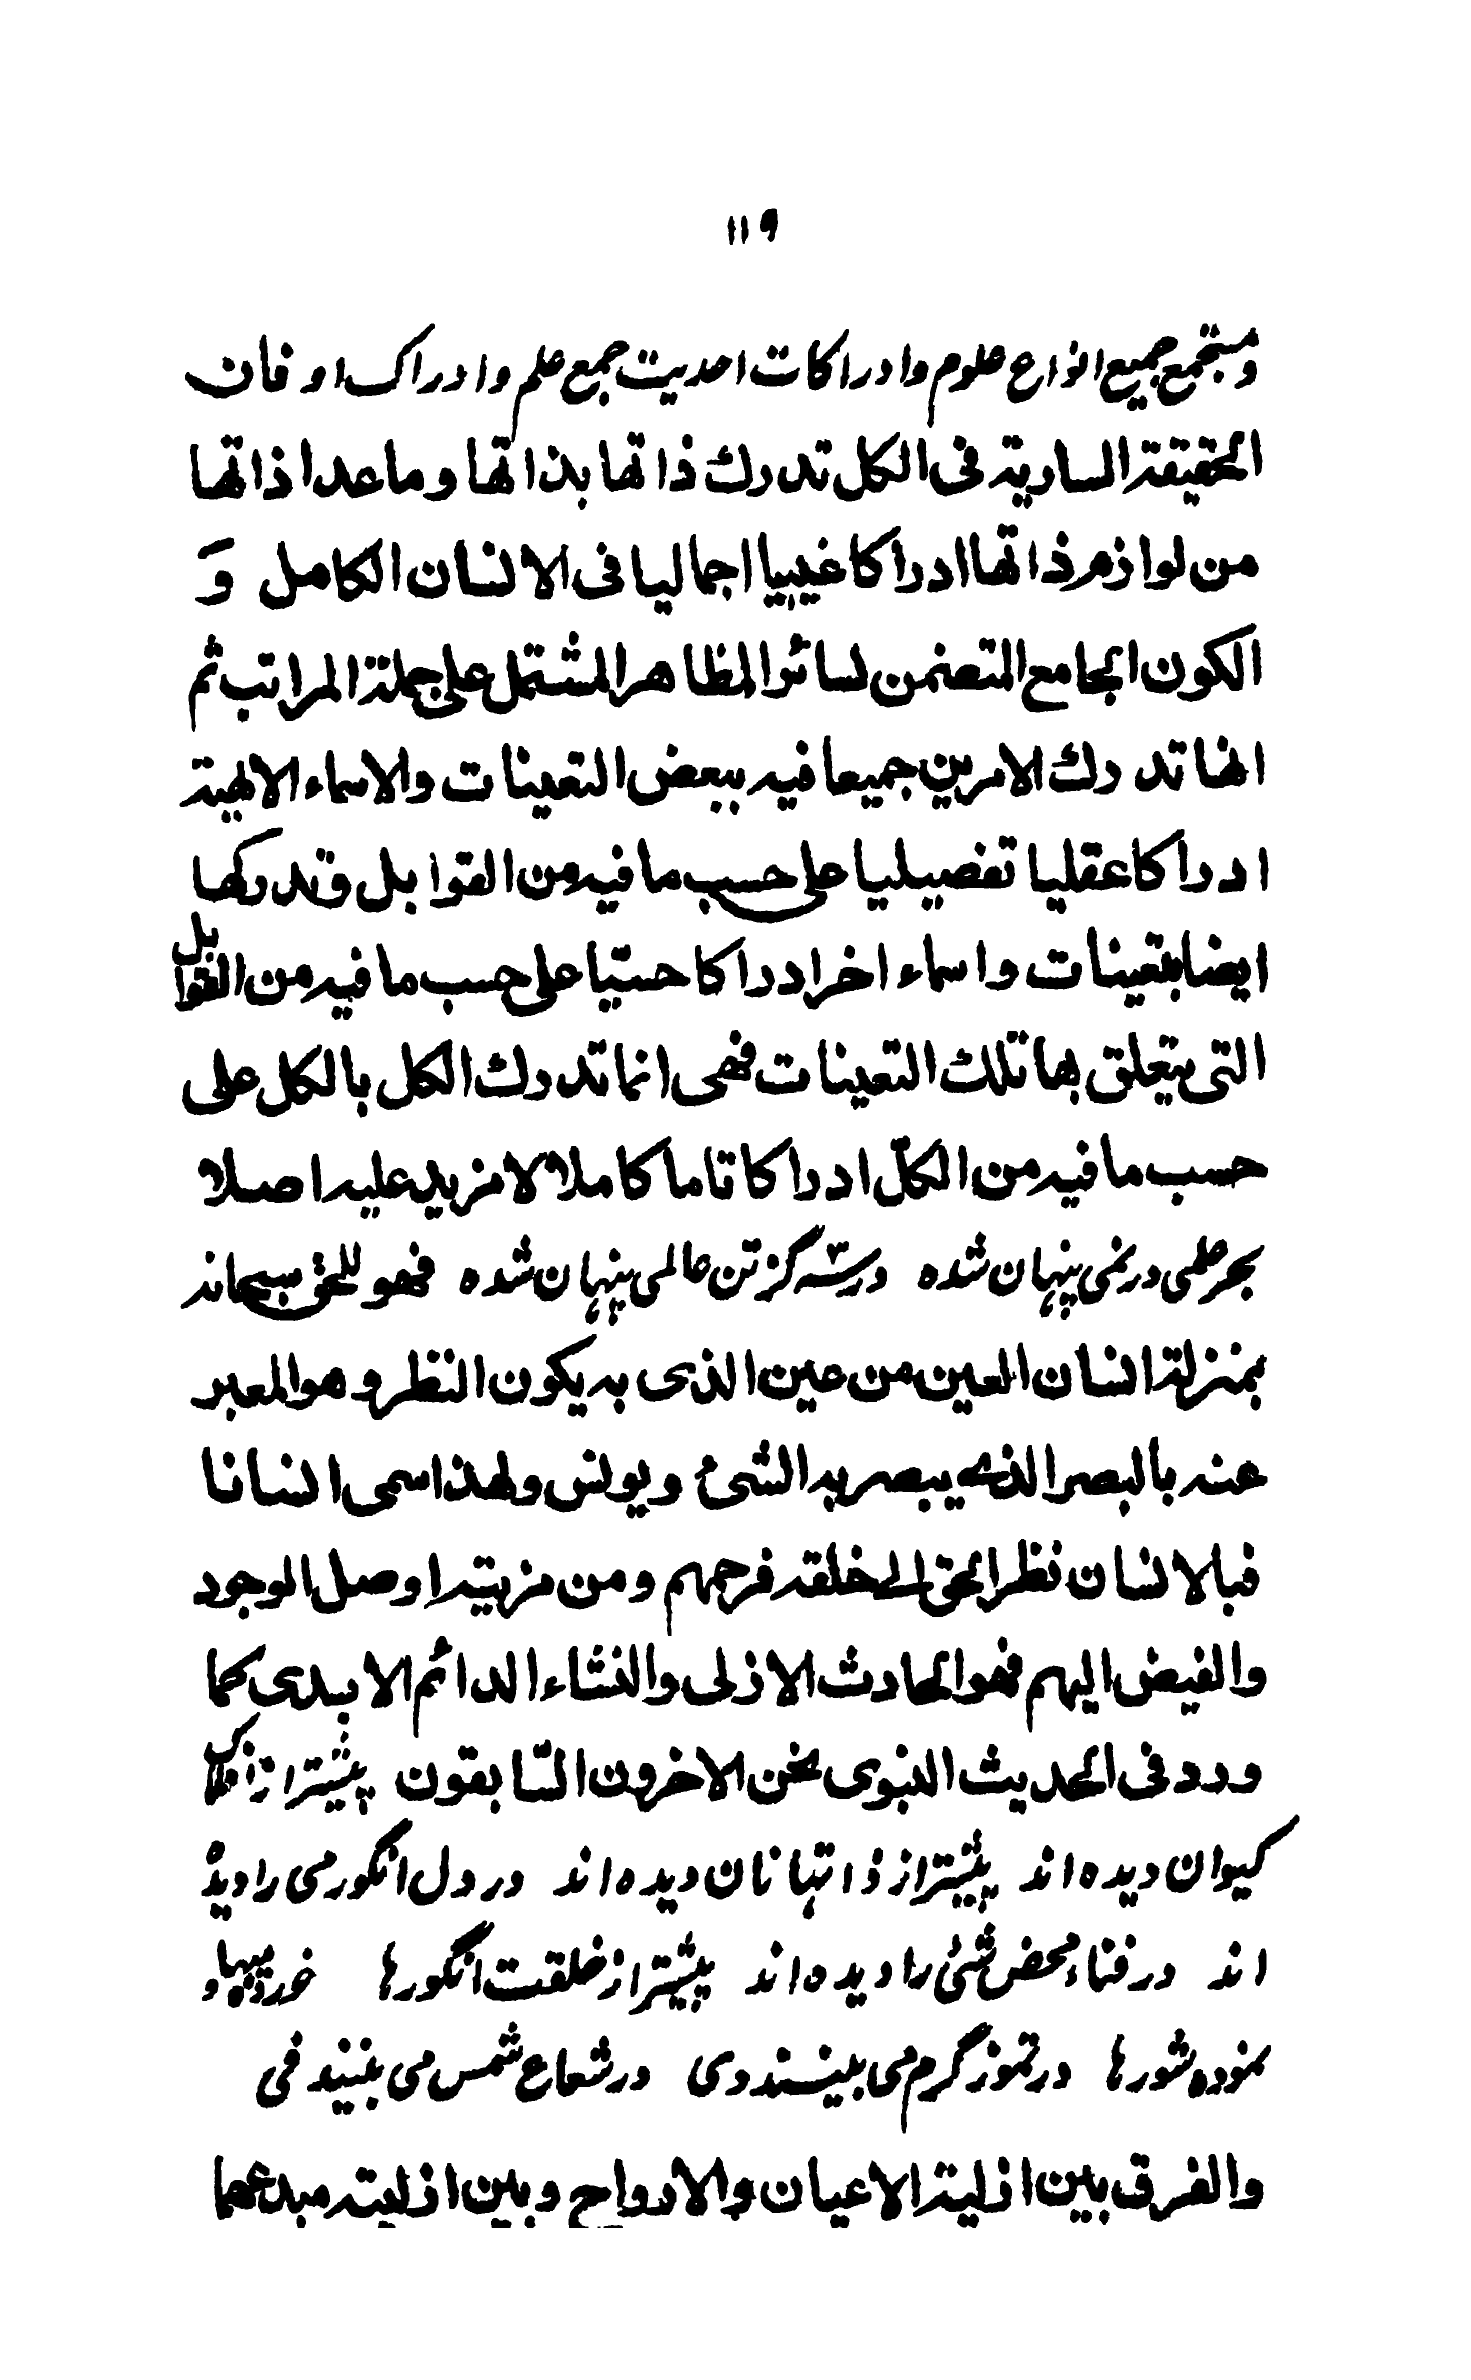 ۱۱۹
و مجتمع جمیع انواع علوم و ادراکات احدیت جمع علم و ادراک او فان
الحقیقة الساریة فی الکل تدرك ذاتها بذاتها و ما عدا ذاتها
من لوازم ذاتها ادراکا غیبیا اجمالیا فی الانسان الکامل وَ
الکون الجامع المتضمن لسائر المظاهر المشتمل علی جملة المراتب ثم
انها تدرك الامرین جمیعا فیه ببعض التعینات والاسماء الالهیة
ادراکا عقلیا تفصیلیا علی حسب ما فیه من القوابل و تدرکها
ایضا بتعینات و اسماء اخر ادراکا حسّیا علی حسب ما فیه من القوابل
التی یتعلق بها تلك التعینات فهی انما تدرك الکل بالکل علی
حسب ما فیه من الکلّ ادراکا تاما کاملا لا مزید علیه اصلا
بحر علمی در نمی پنهان شده در سه گز تن عالمی پنهان شده فهو للحق سبحانه
بمنزلة انسان العین من عین الذی به یکون النظر و هو المعبر
عنه بالبصر الذی یبصر به الشئ و یونس ولهذا سمی انسانا
فبالانسان نظر الحق الی خلقه فرحمهم و من مزیته اوصل الوجود
والفیض الیهم فهو الحادث الازلی والنشاء الدائم الابدی کما
ورد فی الحدیث النبوی نحن الاخرون السّابقون پیشتر از افلاک
کیوان دیده اند پیشتر از ذاتها نان دیده اند در دل انگور می را دیده
اند در فناء محض شئی را دیده اند پیشتر از خلقت انگورها خورده میها و
نموده شورها در تموز گرم می بینند دی در شعاع شمس می بینند فی
والفرق بین ازلیة الاعیان والارواح و بین ازلیته مبدعهما